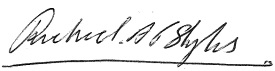 Richard. A G Styles